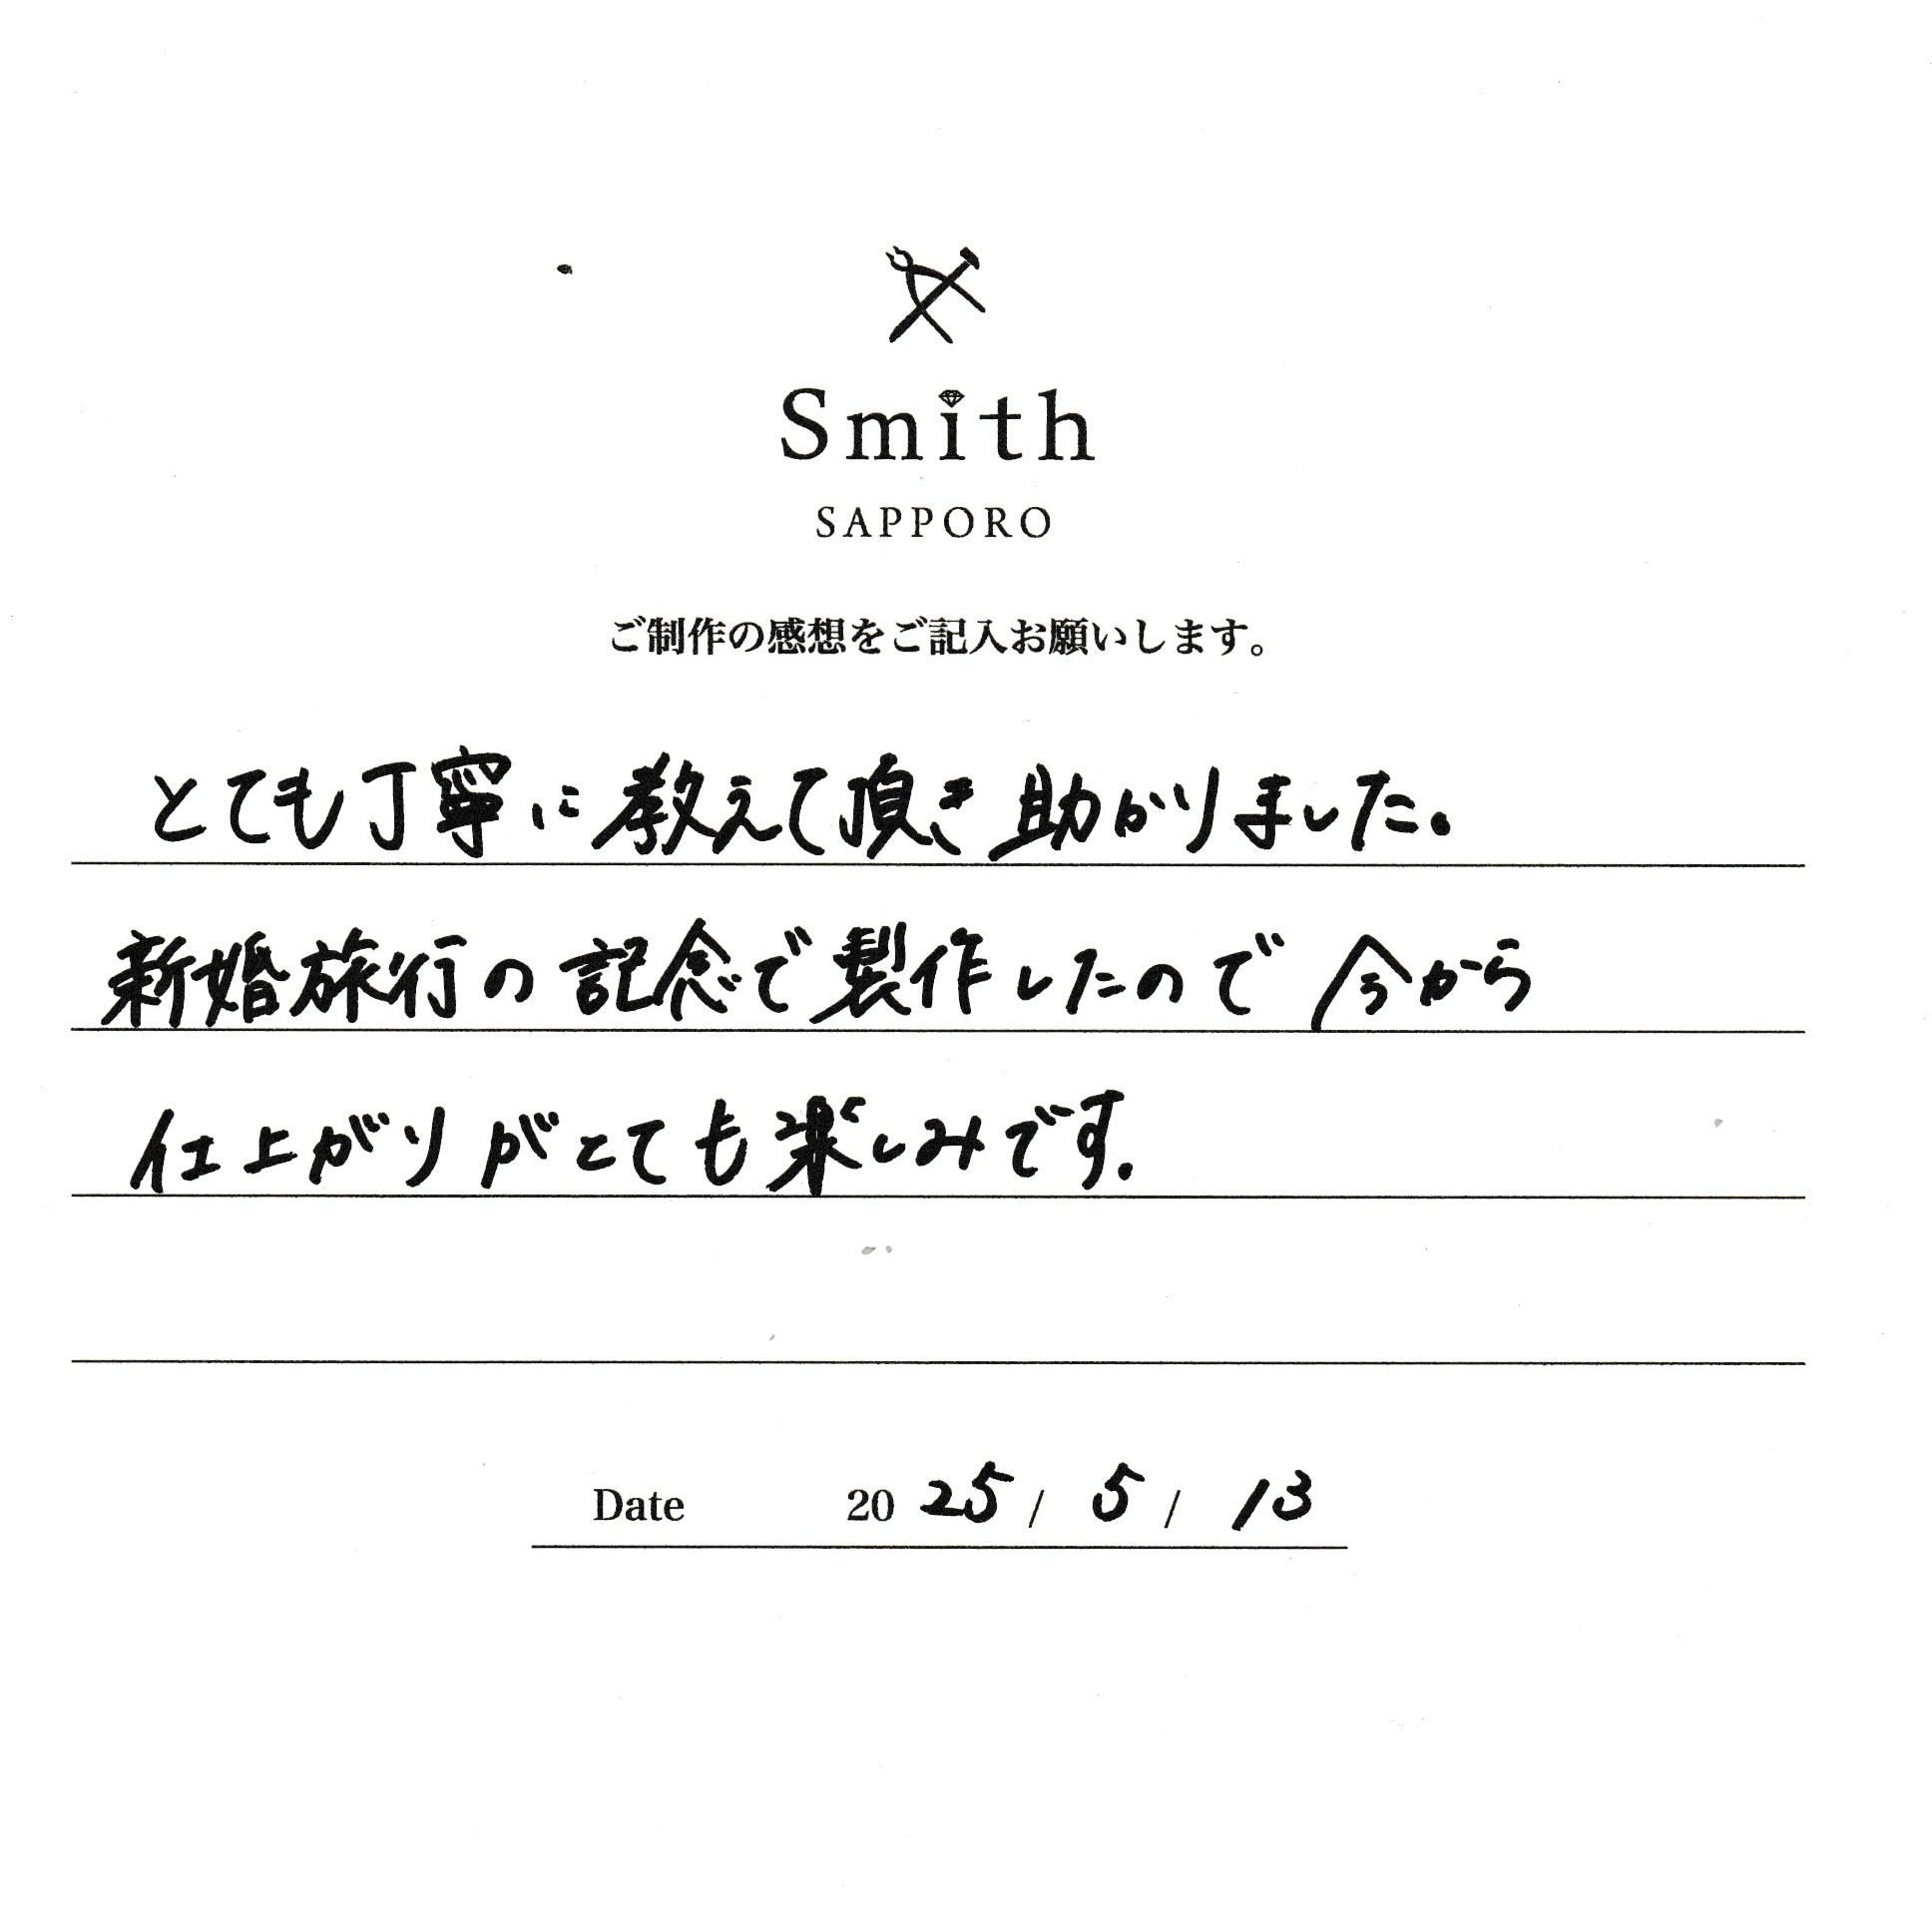 Smith
SAPPORO
ご制作の感想をご記入お願いします。
とても丁寧に教えて頂き助かりました。
新婚旅行の記念で製作したので今から
仕上がりがとても楽しみです.
Date 2025 / 5 / 13